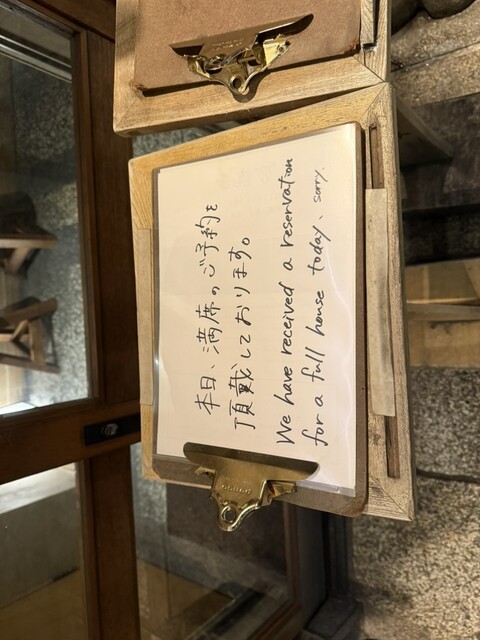 本日、満席のご予約を
頂戴しております。
We have received a reservation
for a full house today、sorry.